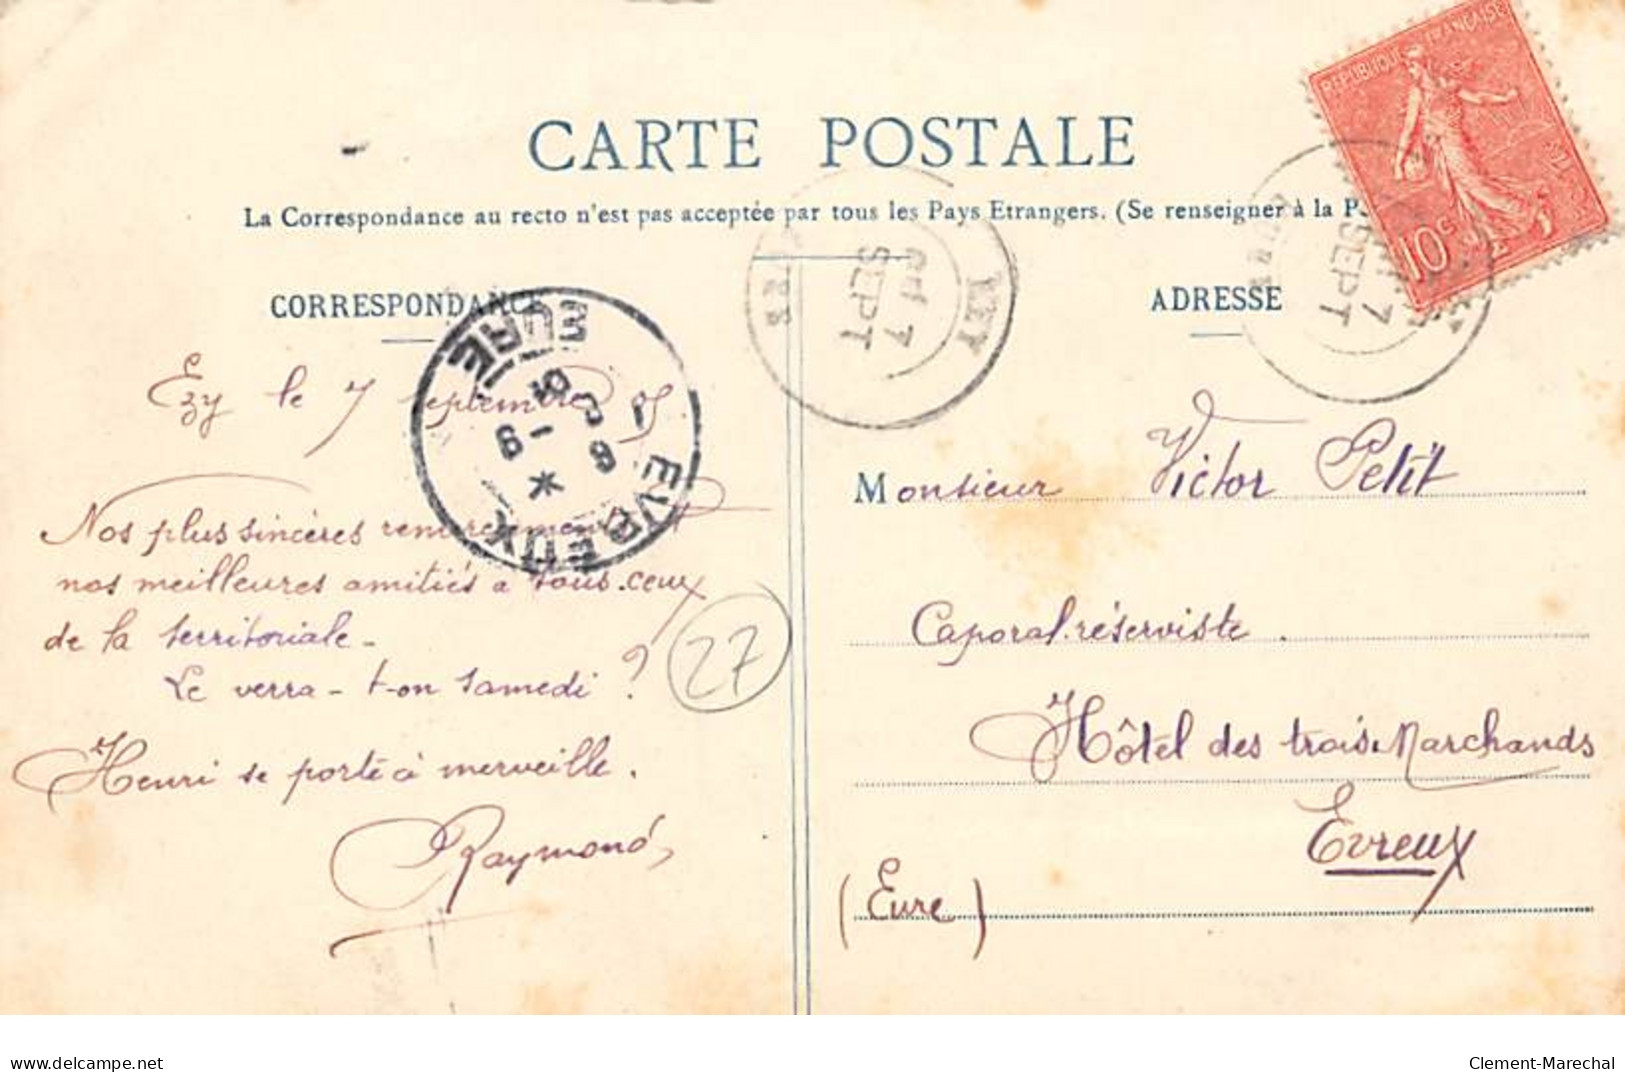 CARTE POSTALE
La Correspondance au recto n'est pas acceptée par tous les Pays Etrangers. (Se renseigner à la
CORRESPONDANCE
ADRESSE
RÉPUBLIQUE FRANÇAISE
10c
7
SEPT
EURE
7
SEPT
EURE
EVREUX
EURE
Ezy le 7 septembre 05
Nos plus sincères remerciements et
nos meilleures amitiés à tous ceux
de la territoriale -
Le verra-t-on samedi ?
Henri se porte à merveille.
Raymond
27
Monsieur Victor Petit
Caporal réserviste.
Hôtel des trois Marchands
Evreux
(Eure)
www.delcampe.net
Clement-Marechal